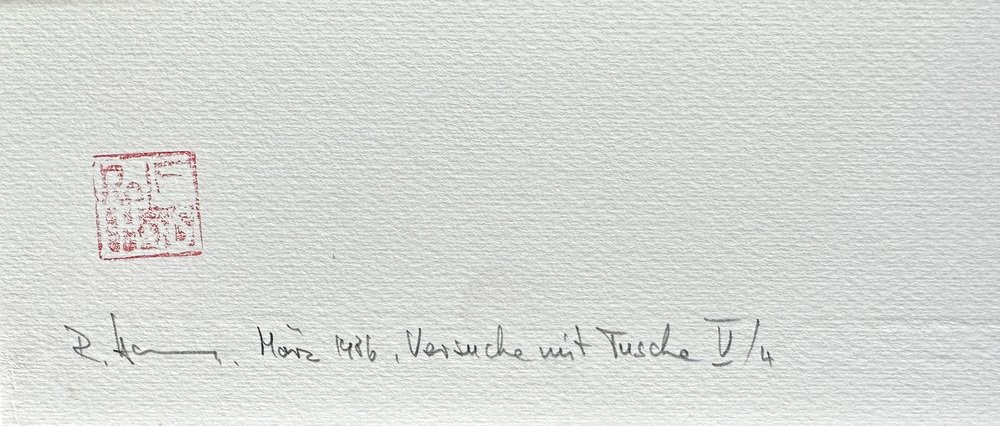 R. März 1986, Versuche mit Tusche V/4